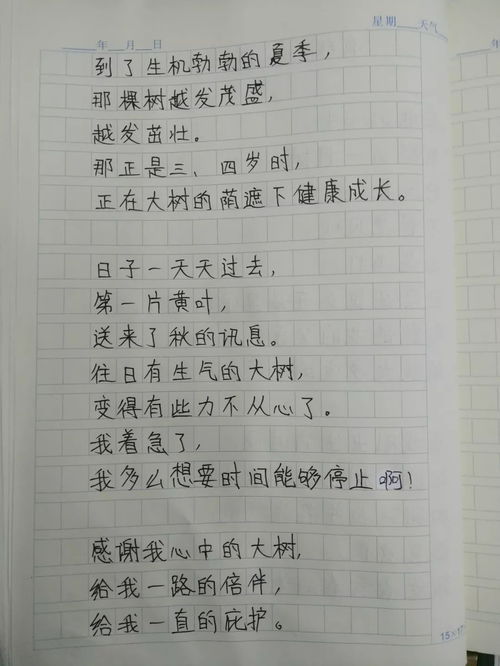 星期 天气
年 月 日
到了生机勃勃的夏季，
那棵树越发茂盛，
越发茁壮。
那正是三、四岁时，
正在大树的荫遮下健康成长。
日子一天天过去，
第一片黄叶，
送来了秋的讯息。
往日有生气的大树，
变得有些力不从心了。
我着急了，
我多么想要时间能够停止啊！
感谢我心中的大树，
给我一路的倍伴，
给我一直的庇护。
15×17